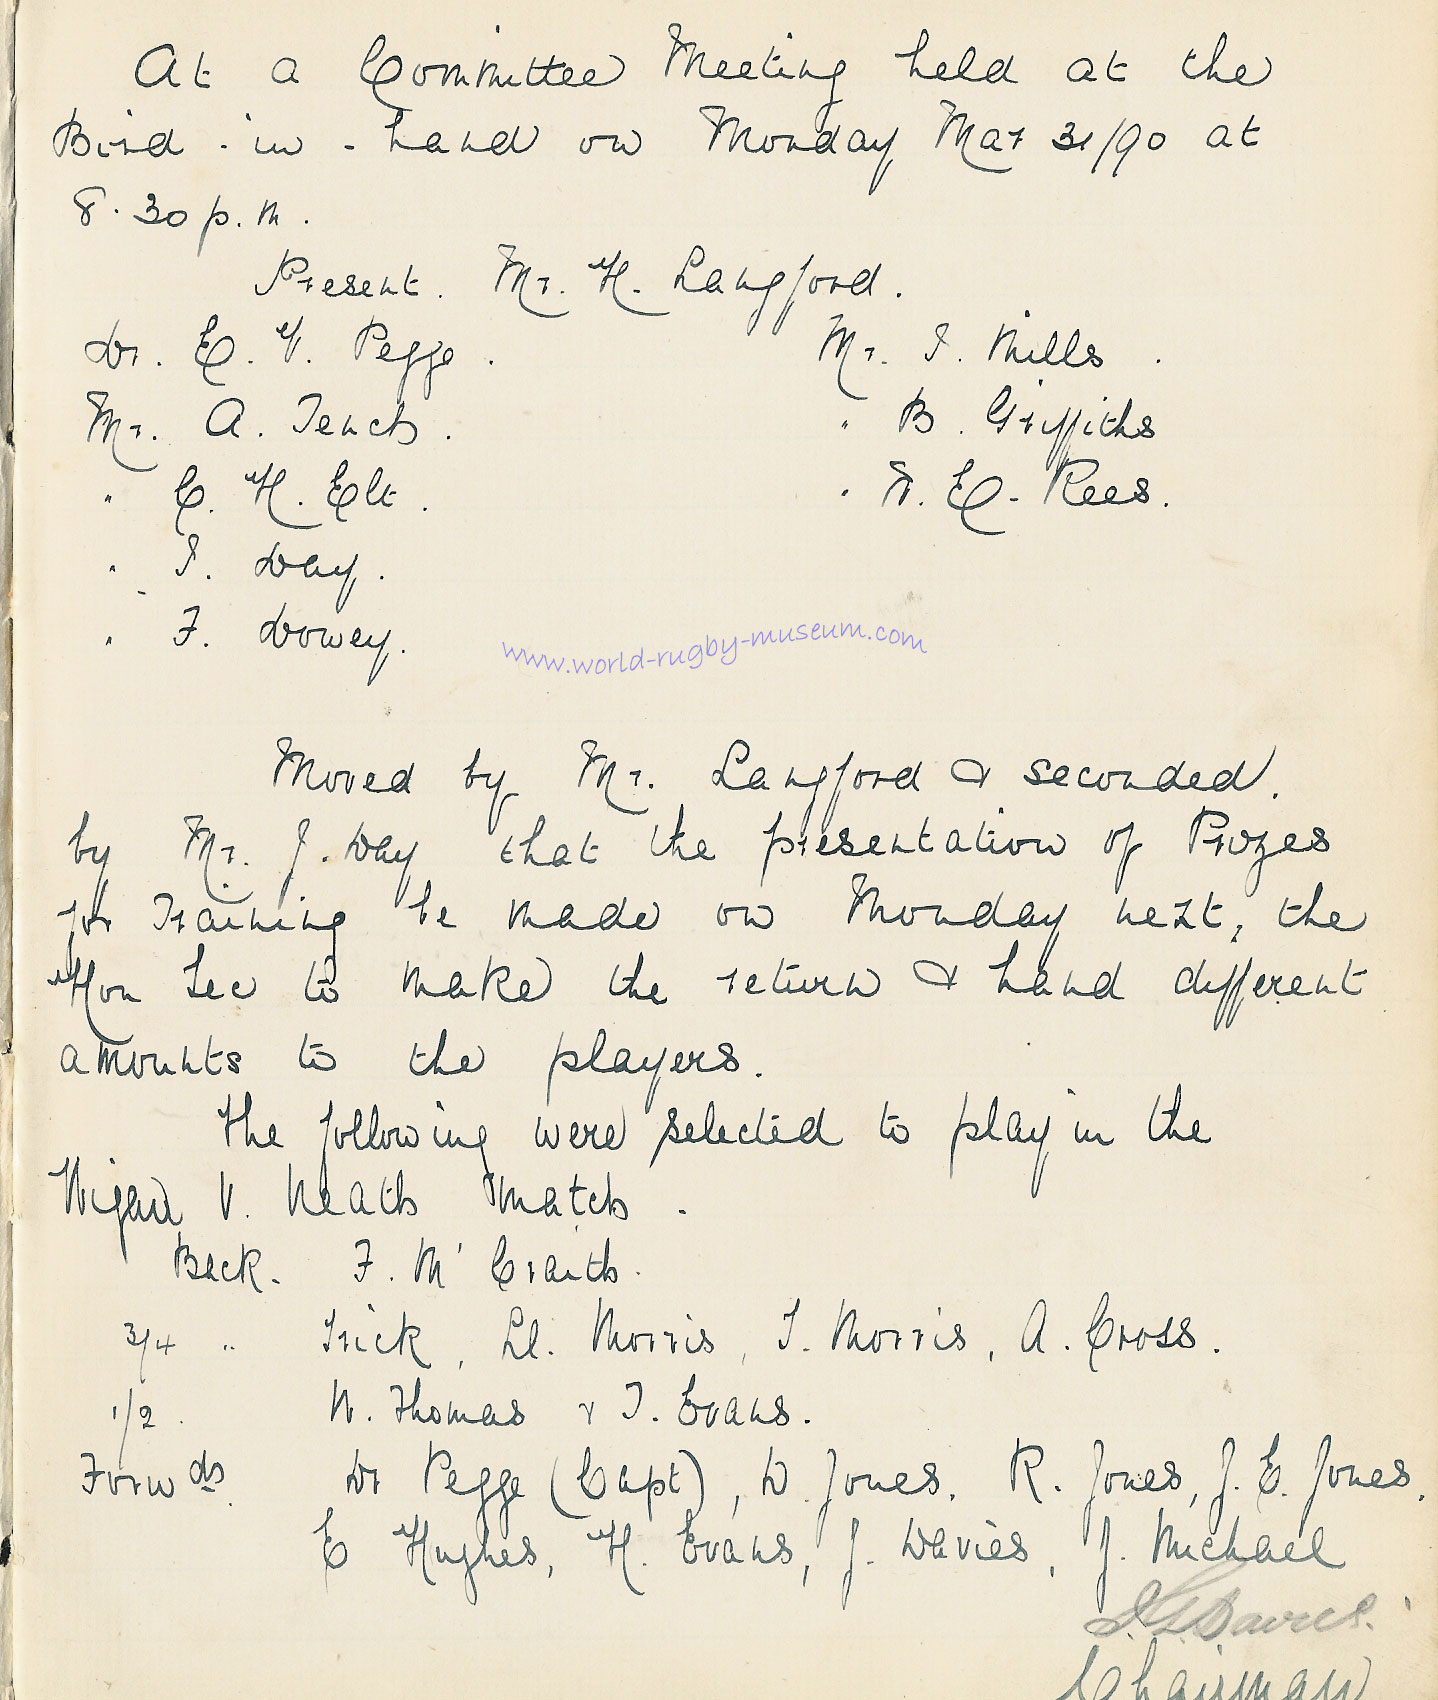 At a Committee Meeting held at the
Bird - in - hand on Monday Mar 31/90 at
8.30 p.m.
Present. Mr. H. Langford.
Dr. E. V. Pegge. Mr. I. Mills.
Mr. A. Tench. " B. Griffiths
" C. H. Elt. " W. E. Rees.
" I. Day.
" F. Dowey.
www.world-rugby-museum.com
Moved by Mr. Langford & seconded.
by Mr. J. Day that the presentation of Prizes
for Training be made on Monday next, the
Hon Sec to make the return & hand different
amounts to the players.
The following were selected to play in the
Wigan V. Neath Match.
Back. F. M'Craith.
3/4 " Trick, Ll. Morris, T. Morris, A. Cross.
1/2. W. Thomas & T. Evans.
Forwds. Dr Pegge (Capt), D. Jones, R. Jones, J. E. Jones,
E Hughes, H. Evans, J. Davies, J. Michael
Davies.
Chairman